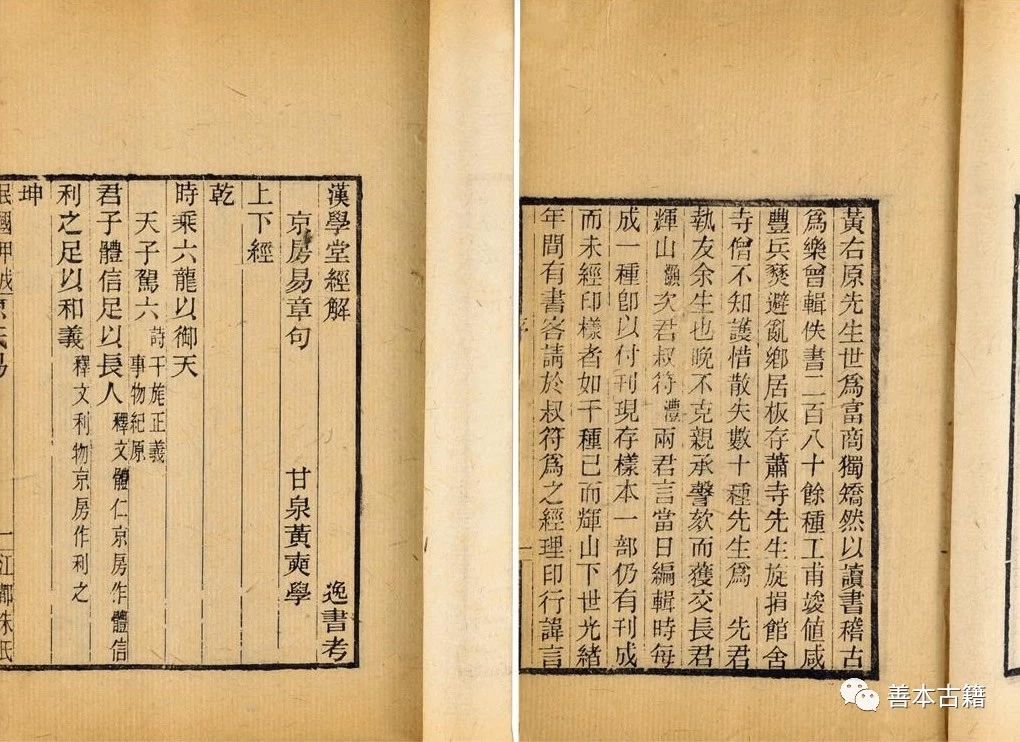 黃右原先生世爲富商獨矯然以讀書稽古
爲樂曾輯佚書二百八十餘種工甫竣値咸
豐兵燹避亂鄉居板存蕭寺先生旋捐館舍
寺僧不知護惜散失數十種先生爲 先君
執友余生也晚不克親承謦欬而獲交長君
輝山灝次君叔符澧兩君言當日編輯時每
成一種卽以付刊現存樣本一部仍有刊成
而未經印樣者如干種已而輝山下世光緒
年間有書客請於叔符爲之經理印行諱言
漢學堂經解 逸書考
京房易章句 甘泉黃奭學
上下經
乾
時乘六龍以御天
天子駕六 詩干旄正義
事物紀原
君子體信足以長人 釋文體仁京房作體信
利之足以和義 釋文利物京房作利之
坤
一 江都朱氏
善本古籍